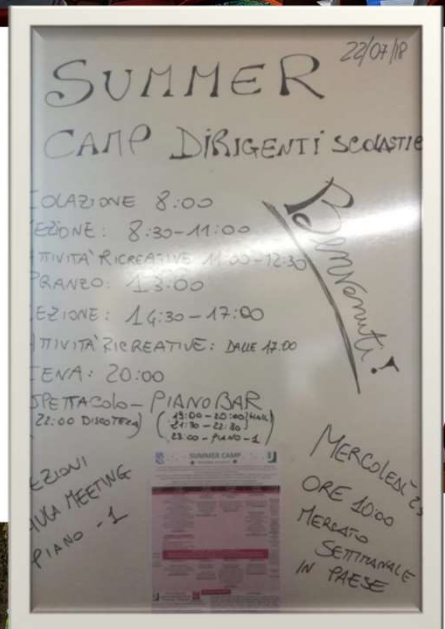 22/07/18
SUMMER
CAMP DIRIGENTI SCOLASTIC
OLAZIONE 8:00
EZIONE: 8:30-11:00
TTIVITA' RICREATIVE 11:00-12:30
PRANZO: 13:00
EZIONE: 14:30-17:00
TTIVITA' RICREATIVE: DALLE 17.00
CENA: 20:00
SPETTACOLO - PIANO BAR
22:00 DISCOTECA)
(19:00-20:00 (HALL)
21:30-22:30
23.00 - PIANO -1)
Benvenuti!
EZIONI
AULA MEETING
PIANO -1
MERCOLEDI' 25
ORE 10:00
MERCATO
SETTIMANALE
IN PAESE
SUMMER CAMP